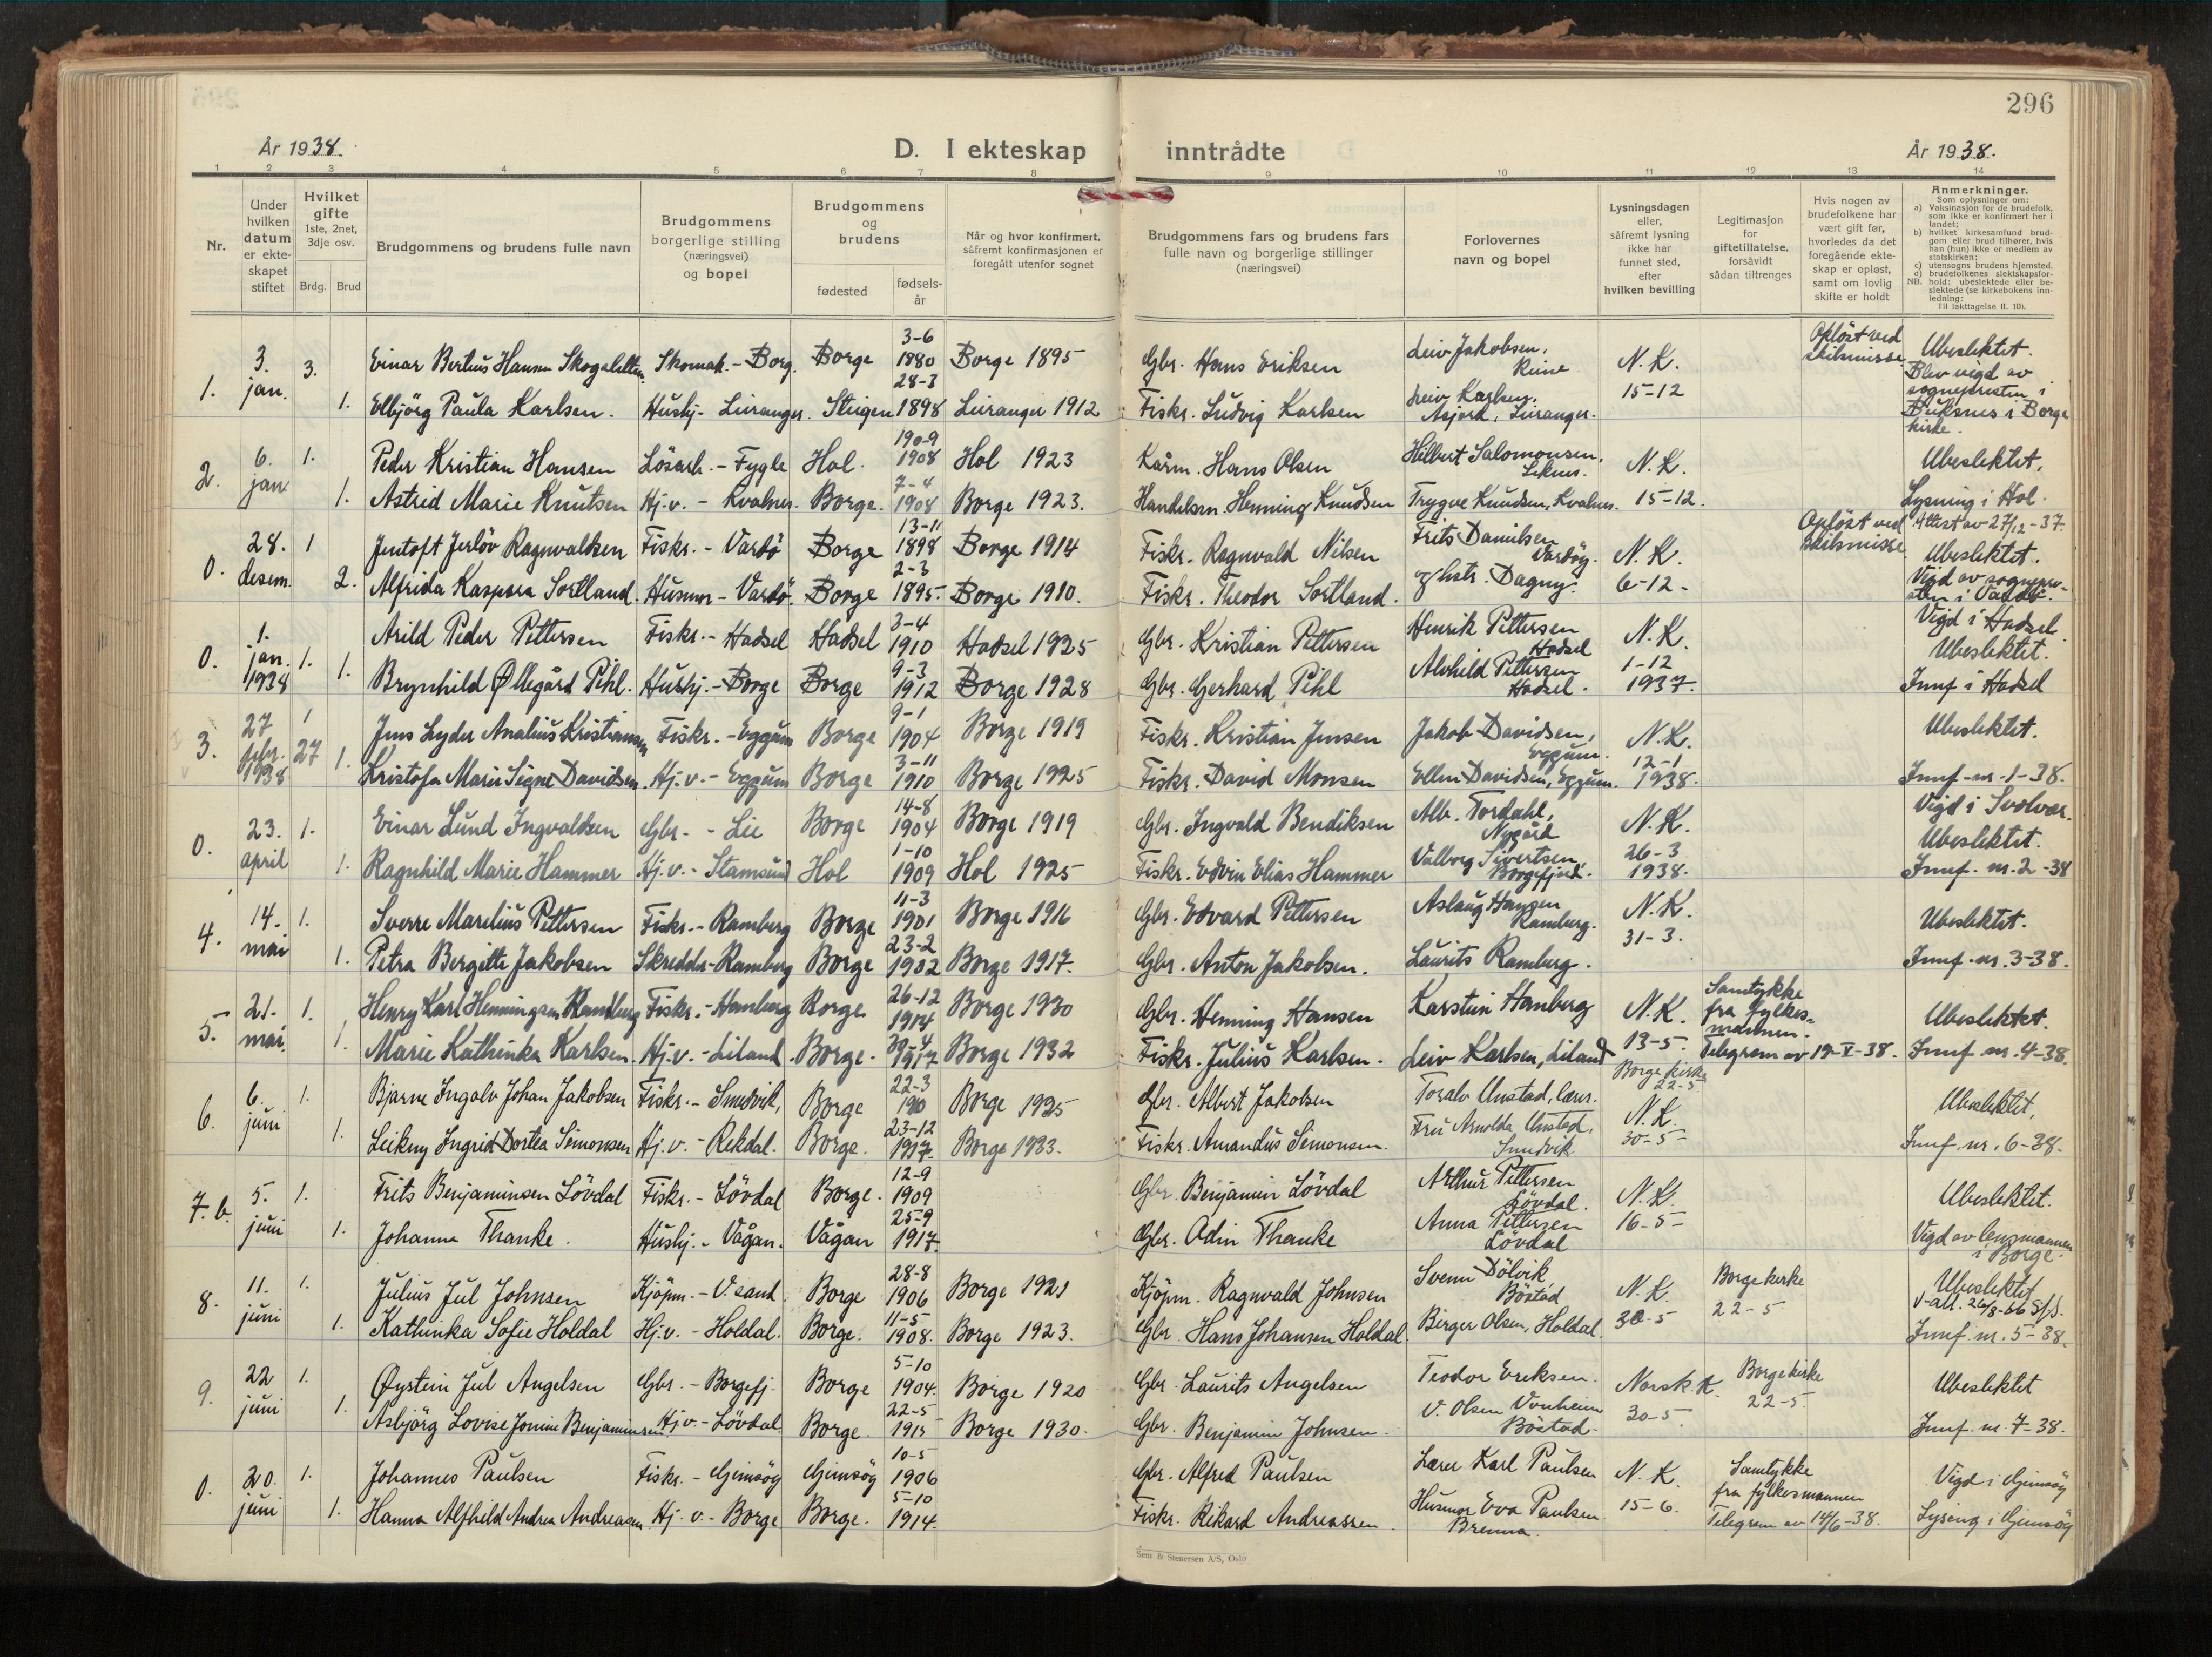 296
År 1938.
D. I ekteskap inntrådte
År 1938.
1 2 3 4 5 6 7 8 9 10 11 12 13 14
Nr.
Under hvilken datum er ekteskapet stiftet
Hvilket gifte 1ste, 2net, 3dje osv.
Brdg. Brud
Brudgommens og brudens fulle navn
Brudgommens borgerlige stilling (næringsvei) og bopel
Brudgommens og brudens
fødested
fødselsår
Når og hvor konfirmert, såfremt konfirmasjonen er foregått utenfor sognet
Brudgommens fars og brudens fars fulle navn og borgerlige stillinger (næringsvei)
Forlovernes navn og bopel
Lysningsdagen eller, såfremt lysning ikke har funnet sted, efter hvilken bevilling
Legitimasjon for giftetillatelse, forsåvidt sådan tiltrenges
Hvis nogen av brudefolkene har vært gift før, hvorledes da det foregående ekteskap er opløst, samt om lovlig skifte er holdt
Anmerkninger.
Som oplysninger om:
a) Vaksinasjon for de brudefolk, som ikke er konfirmert her i landet;
b) hvilket kirkesamfund brudgom eller brud tilhører, hvis han (hun) ikke er medlem av statskirken;
c) utensogns brudens hjemsted.
d) brudefolkenes slektskapsforhold: ubeslektede eller beslektede (se kirkebokens innledning:
NB.
Til iakttagelse II. 10).
1. 3. jan. 3. Einar Bertius Hansen Skomak. - Borg. Borge 3-6 1880 Borge 1895 Gbr. Hans Eriksen Leiv Jakobsen, Reine N.K. 15-12 Opløst ved skilsmisse Ubeslektet.
1. Elbjörg Paula Karlsen. Hushj. - Leiranger. Steigen 28-3 1898 Leiranger 1912 Fiskr. Ludvig Karlsen Leiv Karlsen, Leiranger. Blev vigd av sognepresten i Buksnes i Borge kirke.
2. 6. jan 1. Peder Kristian Hansen Lösarb. - Fygle Hol. 1908 Hol 1923 Hans Olsen Hilbert Salomonsen, Leknes. N.K. 15-12. Ubeslektet.
1. Astrid Marie Knutsen Hj.v. - Kvalnes. Borge. 7-4 1908 Borge 1923. Handelsm. Henning Knudsen Trygve Knudsen, Kvalnes. Lysning i Hol. Attest av 27/12-37.
0. 28. desem. 1 Jentoft Jerlöv Ragnvaldsen Fiskr. - Vardö Borge 13-11 1898 Borge 1914 Fiskr. Ragnvald Nilsen Frits Danielsen Vardöy. N.K. 6-12- Opløst ved skilsmisse Ubeslektet.
2. Alfrida Kaspara Sortland. Husmor - Vardö. Borge 2-3 1895. Borge 1910. Fiskr. Theodor Sortland. og hstr. Dagny. Vigd av sognepresten i Vardö.
0. 1. jan. 1938 1. Arild Peder Pettersen Fiskr. - Hadsel Hadsel 3-4 1910 Hadsel 1925 Gbr. Kristian Pettersen Henrik Pettersen Hadsel N.K. 1-12 1937. Vigd i Hadsel. Ubeslektet.
1. Brynhild Øllegård Pihl. Hushj. - Borge Borge 9-3 1912 Borge 1928 Gbr. Gerhard Pihl Alvhild Pettersen Hadsel. Innf i Hadsel
3. 27 febr. 1938 1 27 Jens Lyder Analius Kristiansen Fiskr. - Eggum Borge 9-1 1904 Borge 1919 Fiskr. Kristian Jensen Jakob Davidsen, Eggum. N.K. 12-1 1938. Ubeslektet.
1. Kristofa Marie Signe Davidsen. Hj.v. - Eggum Borge 3-11 1910 Borge 1925 Fiskr. David Monsen Ellen Davidsen, Eggum. Innf. nr. 1-38.
0. 23. april 1. Einar Lund Ingvaldsen Gbr. - Lie Borge 14-8 1904 Borge 1919 Gbr. Ingvald Bendiksen Alb. Tordahl, Nygård N.K. 26-3 1938. Vigd i Svolvær. Ubeslektet.
1. Ragnhild Marie Hammer Hj.v. - Stamsund Hol 1-10 1909 Hol 1925 Fiskr. Edvin Elias Hammer Valborg Sivertsen, Borgefjord. Innf. nr. 2-38
4. 14. mai 1. Sverre Marelius Pettersen Fiskr. - Ramberg Borge 11-3 1901 Borge 1916 Gbr. Edvard Pettersen Aslaug Hansen Ramberg. N.K. 31-3. Ubeslektet.
1. Petra Bergitte Jakobsen Skredder - Ramberg Borge 23-2 1902 Borge 1917. Gbr. Anton Jakobsen. Laurits Ramberg. Innf. nr. 3-38.
5. 21. mai. 1. Henry Karl Henningsen Hamberg Fiskr. - Hamberg Borge 26-12 1914 Borge 1930 Gbr. Henning Hansen Karstein Hamberg N.K. 13-5. Samtykke fra fylkesmannen. Telegram av 19-V-38. Ubeslektet.
1. Marie Kathinka Karlsen. Hj.v. - Liland. Borge. 30-4 1917 Borge 1932 Fiskr. Julius Karlsen. Leiv Karlsen, Liland Innf. nr. 4-38.
6. 6. juni 1. Bjarne Ingolv Johan Jakobsen Fiskr. - Smedvik, Borge 22-3 1910 Borge 1925 Gbr. Albert Jakobsen Toralv Unstad, lærer. Borge kirke 22-5 N.K. 30-5- Ubeslektet.
1. Leikny Ingrid Dortea Simonsen Hj.v. - Rekdal. Borge. 23-12 1917. Borge 1933. Fiskr. Amandus Simonsen. Fru Arnolda Unstad, Smedvik Innf. nr. 6-38.
7.b. 5. juni 1. Frits Benjaminsen Lövdal Fiskr. - Lövdal Borge. 12-9 1909 Gbr. Benjamin Lövdal Arthur Pettersen Lövdal. N.K. 16-5- Ubeslektet.
1. Johanna Thanke. Hushj. - Vågan. Vågan 25-9 1917. Gbr. Odin Thanke Anna Pettersen Lövdal Vigd av lensmannen i Borge.
8. 11. juni 1. Julius Jul Johnsen Kjöpm. - V.sand. Borge 28-8 1906 Borge 1921 Kjöpm. Ragnvald Johnsen Svenn Dölvik, Böstad N.K. 30-5 Borge kirke 22-5 Ubeslektet V-att. 26/8-66
1. Kathinka Sofie Holdal Hj.v. - Holdal. Borge. 11-5 1908. Borge 1923. Gbr. Hans Johansen Holdal. Birger Olsen, Holdal. Innf. nr. 5-38.
9. 22 juni 1. Øystein Jul Angelsen Gbr. - Borgefj. Borge 5-10 1904. Borge 1920 Gbr. Laurits Angelsen Teodor Eriksen. Norsk.K. 30-5. Borge kirke 22-5. Ubeslektet
1. Asbjörg Lovise Jonine Benjaminsen Hj.v. - Lövdal. Borge. 22-5 1915 Borge 1930. Gbr. Benjamin Johnsen. V. Olsen Vonheim Böstad. Innf. nr. 7-38.
0. 20. juni 1. Johannes Paulsen Fiskr. - Gimsöy Gimsöy 10-5 1906 Gbr. Alfred Paulsen Lærer Karl Paulsen N.K. 15-6. Samtykke fra fylkesmannen Telegram av 14/6-38. Vigd i Gimsöy
1. Hanna Alfhild Andrea Andreasen. Hj.v. - Borge Borge. 5-10 1914. Fiskr. Rikard Andreassen. Husmor Eva Paulsen Brenna. Lysning i Gimsöy
Sem & Stenersen A/S, Oslo